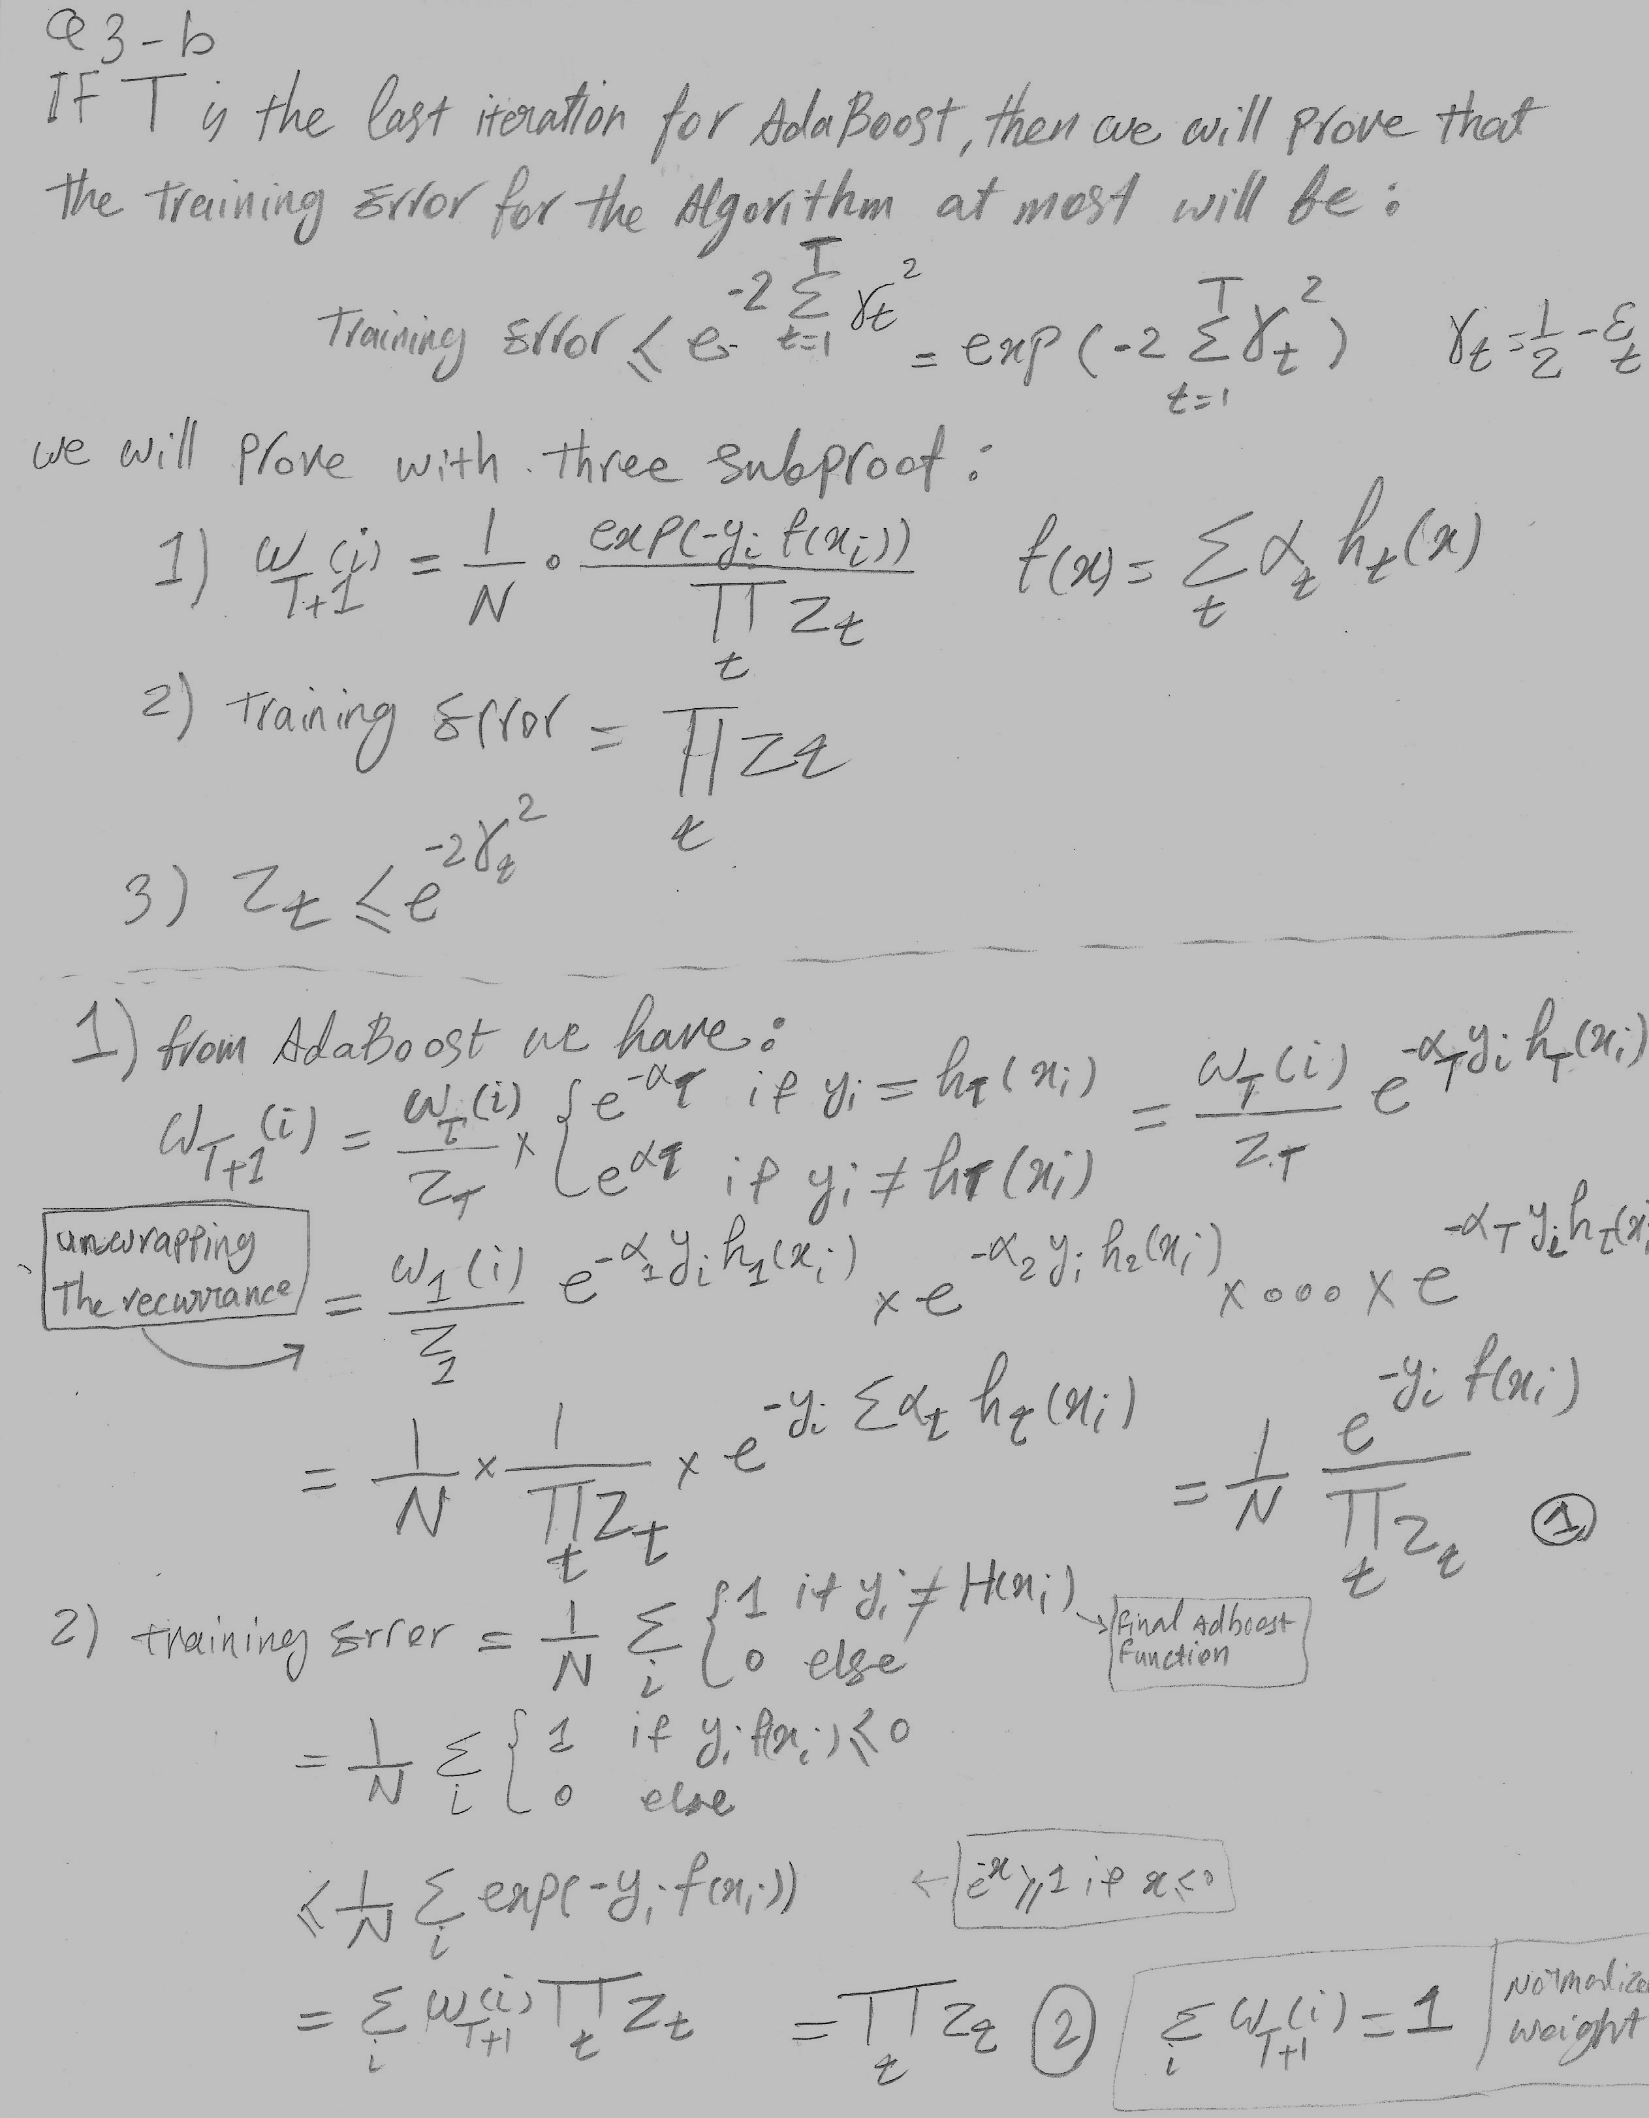 Q3-b
IF T is the last iteration for AdaBoost, then we will prove that
the training Error for the Algorithm at most will be:
Training Error ≤ e^{-2 Σ_{t=1}^{T} γ_t^2} = exp(-2 Σ_{t=1}^{T} γ_t^2)    γ_t = 1/2 - ε_t
we will prove with three subproof:
1) ω_{T+1}(i) = 1/N · exp(-y_i f(x_i)) / Π_t Z_t    f(x) = Σ_t α_t h_t(x)
2) training Error = Π_t Z_t
3) Z_t ≤ e^{-2γ_t^2}
1) from AdaBoost we have:
ω_{T+1}(i) = ω_T(i)/Z_T × { e^{-α_T} if y_i = h_T(x_i) = ω_T(i)/Z_T e^{-α_T y_i h_T(x_i)}
e^{α_T} if y_i ≠ h_T(x_i)
unwrapping
The recurrance
= ω_1(i)/Z_1 e^{-α_1 y_i h_1(x_i)} × e^{-α_2 y_i h_2(x_i)} × ooo × e^{-α_T y_i h_T(x_i)}
= 1/N × 1/Π_t Z_t × e^{-y_i Σ α_t h_t(x_i)} = 1/N e^{-y_i f(x_i)} / Π_t Z_t ①
2) training Error = 1/N Σ_i { 1 if y_i ≠ H(x_i)
0 else
final Adboost
Function
= 1/N Σ_i { 1 if y_i f(x_i) ≤ 0
0 else
≤ 1/N Σ_i exp(-y_i f(x_i)) ← e^{-x} ≥ 1 if x ≤ 0
= Σ_i ω_{T+1}(i) Π_t Z_t = Π_t Z_t ② Σ_i ω_{T+1}(i) = 1
Normalize
weight